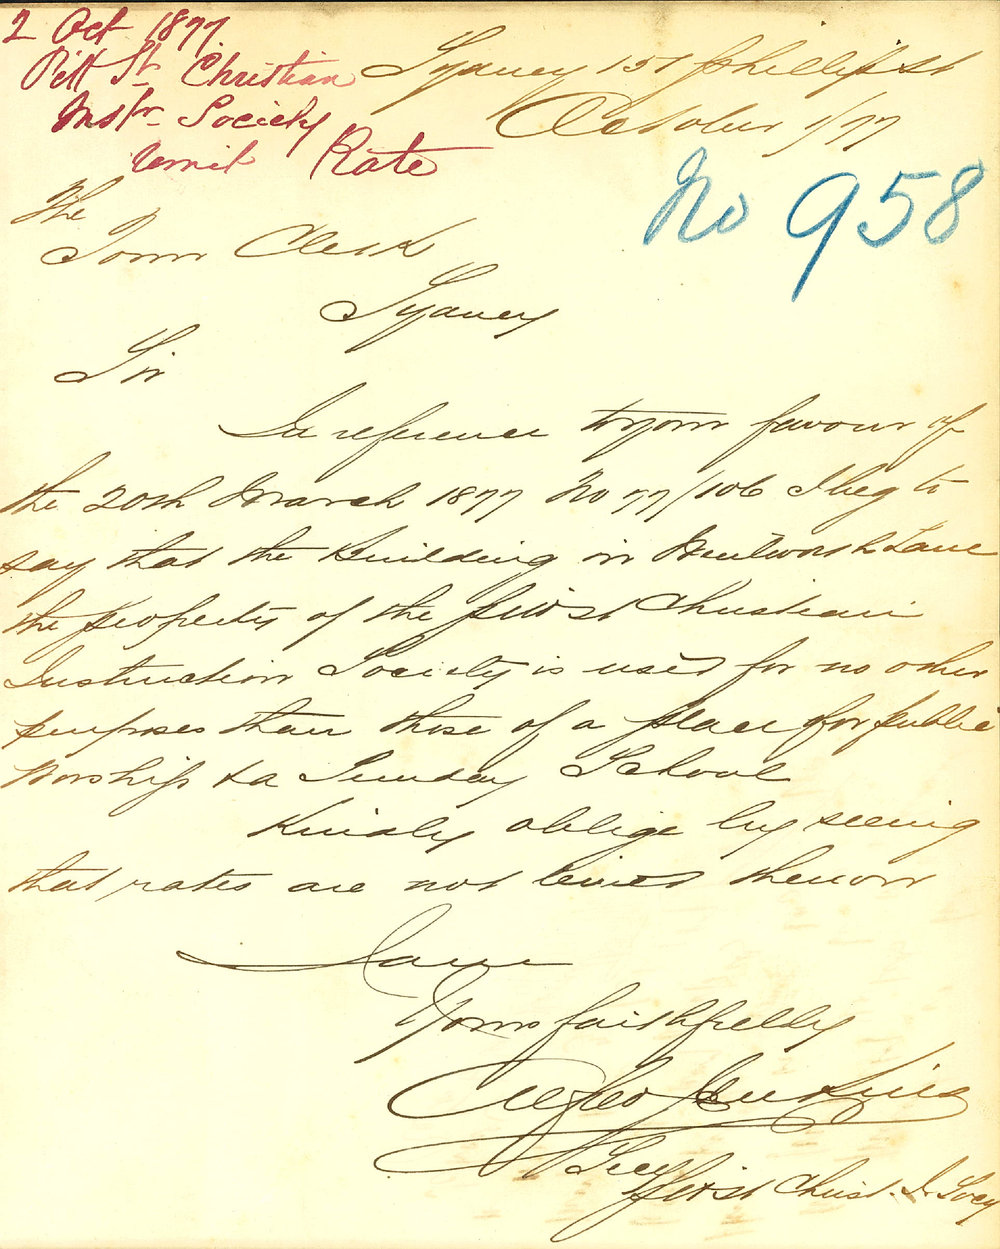 2 Oct 1877
Pitt St Christian
Instr. Society
remit Rate
Sydney 151 Phillip St
October 1/77
No 958
The
Town Clerk
Sydney
Sir
In reference to your favour of
the 20th March 1877 No 77/106 I beg to
say that the Building in Wentworth Lane
the property of the first Christian
Instruction Society is used for no other
purposes than those of a place for public
Worship & a Sunday School
Kindly oblige by seeing
that rates are not levied thereon
I am
Yours faithfully
Jenkins
Secy
first Christ. I. Socy